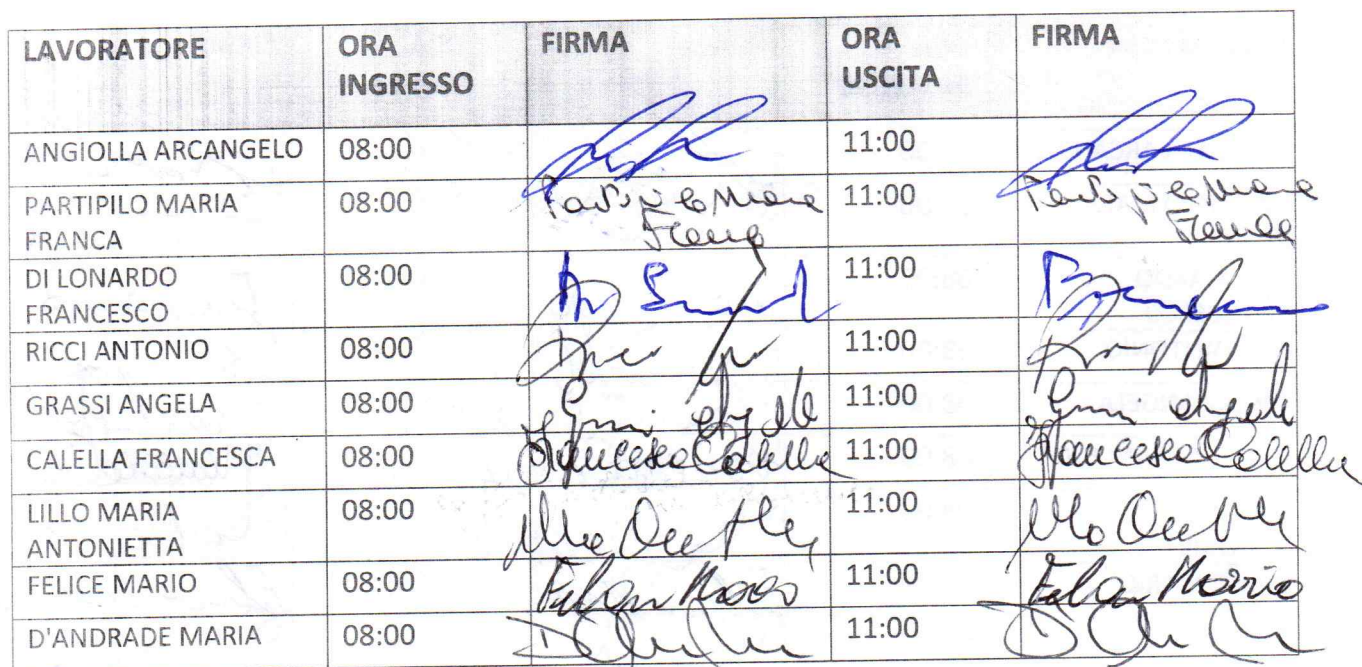 LAVORATORE ORA INGRESSO FIRMA ORA USCITA FIRMA
ANGIOLLA ARCANGELO 08:00 11:00
PARTIPILO MARIA FRANCA 08:00 Partipilo Maria Franca 11:00 Partipilo Maria Franca
DI LONARDO FRANCESCO 08:00 11:00
RICCI ANTONIO 08:00 11:00
GRASSI ANGELA 08:00 11:00
CALELLA FRANCESCA 08:00 Francesca Calella 11:00 Francesca Calella
LILLO MARIA ANTONIETTA 08:00 11:00
FELICE MARIO 08:00 11:00 Mario
D'ANDRADE MARIA 08:00 11:00